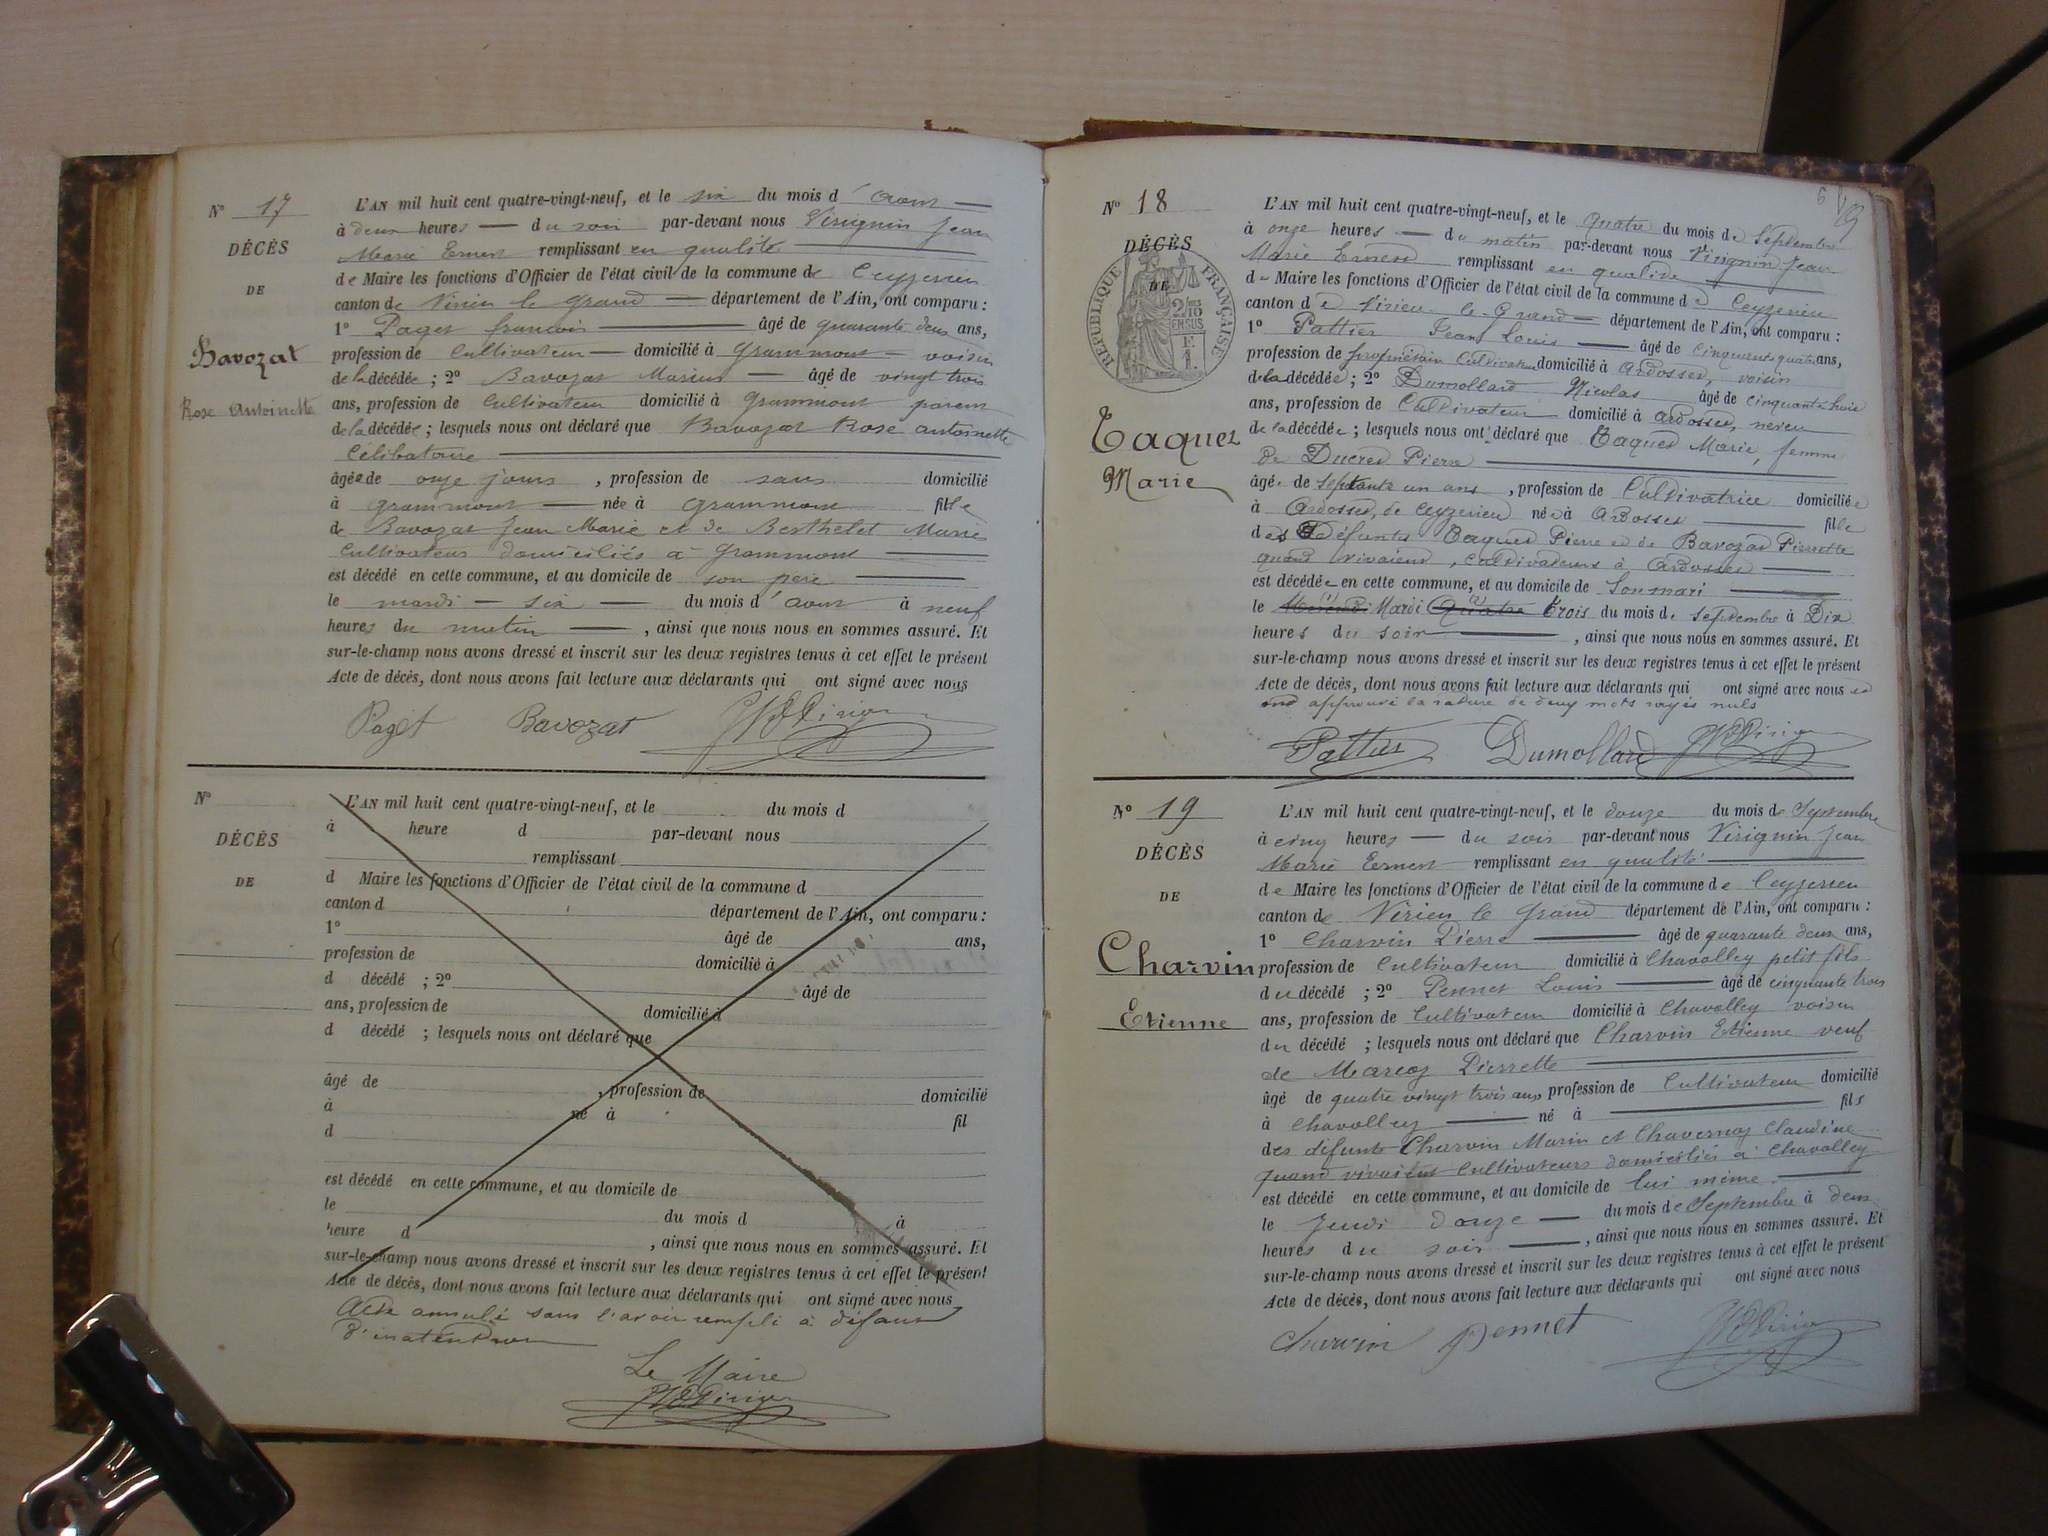 N° 17
DÉCÈS
DE
Bavozat
Rose Antoinette
L'AN mil huit cent quatre-vingt-neuf, et le six du mois d'aout
à deux heures du soir par-devant nous Virignin Jean
Marie Ernest remplissant en qualité
de Maire les fonctions d'Officier de l'état civil de la commune de Ceyzerieu
canton de Virieu le grand département de l'Ain, ont comparu :
1° Paget francois âgé de quarante deux ans,
profession de Cultivateur domicilié à grammont voisin
de la décédée ; 2° Bavozat Marius âgé de vingt trois
ans, profession de Cultivateur domicilié à grammont parent
de la décédée ; lesquels nous ont déclaré que Bavozat Rose antoinette
Célibataire
âgée de onze jours , profession de sans domicilié
à grammont née à grammont fille
de Bavozat Jean Marie et de Berthelet Marie
Cultivateurs domiciliés à grammont
est décédé en cette commune, et au domicile de son père
le mardi six du mois d'aout à neuf
heures du matin , ainsi que nous nous en sommes assuré. Et
sur-le-champ nous avons dressé et inscrit sur les deux registres tenus à cet effet le présent
Acte de décès, dont nous avons fait lecture aux déclarants qui ont signé avec nous
Paget Bavozat
N°
DÉCÈS
DE
L'AN mil huit cent quatre-vingt-neuf, et le du mois d
à heure d par-devant nous
remplissant
d Maire les fonctions d'Officier de l'état civil de la commune d
canton d département de l'Ain, ont comparu :
1° âgé de ans,
profession de domicilié à
d décédé ; 2° âgé de
ans, profession de domicilié à
d décédé ; lesquels nous ont déclaré que
âgé de , profession de domicilié
à né à fil
d
est décédé en cette commune, et au domicile de
le du mois d à
heure d , ainsi que nous nous en sommes assuré. Et
sur-le-champ nous avons dressé et inscrit sur les deux registres tenus à cet effet le présent
Acte de décès, dont nous avons fait lecture aux déclarants qui ont signé avec nous
Acte annulé sans l'avoir rempli à défaut
d'inatention
Le Maire
N° 18
DÉCÈS
DE
RÉPUBLIQUE FRANÇAISE
2/10 EN SUS
E 1.
Taquet
Marie
L'AN mil huit cent quatre-vingt-neuf, et le quatre du mois de Septembre
à onze heures du matin par-devant nous Virignin Jean
Marie Ernest remplissant en qualité
de Maire les fonctions d'Officier de l'état civil de la commune de Ceyzerieu
canton de Virieu le Grand département de l'Ain, ont comparu :
1° Pattier Jean Louis âgé de Cinquante quatre ans,
profession de propriétaire Cultivateur domicilié à Ardosset, voisin
de la décédée ; 2° Dumollard Nicolas âgé de cinquante huit
ans, profession de Cultivateur domicilié à ardosset, neveu
de la décédée ; lesquels nous ont déclaré que Taquet Marie, femme
de Ducret Pierre
âgée de septante un ans , profession de Cultivatrice domiciliée
à Ardosset, de Ceyzerieu née à Ardosset fille
des Défunts Taquet Pierre et de Bavozat Pierrette
quand vivaient, cultivateurs à Ardosset
est décédée en cette commune, et au domicile de son mari
le Mardi Quatre trois du mois de septembre à Dix
heures du soir , ainsi que nous nous en sommes assuré. Et
sur-le-champ nous avons dressé et inscrit sur les deux registres tenus à cet effet le présent
Acte de décès, dont nous avons fait lecture aux déclarants qui ont signé avec nous et
approuvé la rature de deux mots rayés nuls
Pattier Dumollard
N° 19
DÉCÈS
DE
Charvin
Etienne
L'AN mil huit cent quatre-vingt-neuf, et le douze du mois de Septembre
à cinq heures du soir par-devant nous Virignin Jean
Marie Ernest remplissant en qualité
de Maire les fonctions d'Officier de l'état civil de la commune de Ceyzerieu
canton de Virieu le Grand département de l'Ain, ont comparu :
1° Charvin Pierre âgé de quarante deux ans,
profession de Cultivateur domicilié à Chavolley petit fils
du décédé ; 2° Pennet Louis âgé de cinquante trois
ans, profession de Cultivateur domicilié à Chavolley voisin
du décédé ; lesquels nous ont déclaré que Charvin Etienne veuf
de Marcoz Pierrette
âgé de quatre vingt trois ans, profession de Cultivateur domicilié
à Chavolley né à fils
des défunts Charvin Marin et Chavernoz Claudine
quand vivaient Cultivateurs domiciliés à Chavolley
est décédé en cette commune, et au domicile de lui même
le Jeudi douze du mois de Septembre à deux
heures du soir , ainsi que nous nous en sommes assuré. Et
sur-le-champ nous avons dressé et inscrit sur les deux registres tenus à cet effet le présent
Acte de décès, dont nous avons fait lecture aux déclarants qui ont signé avec nous
Charvin Pennet